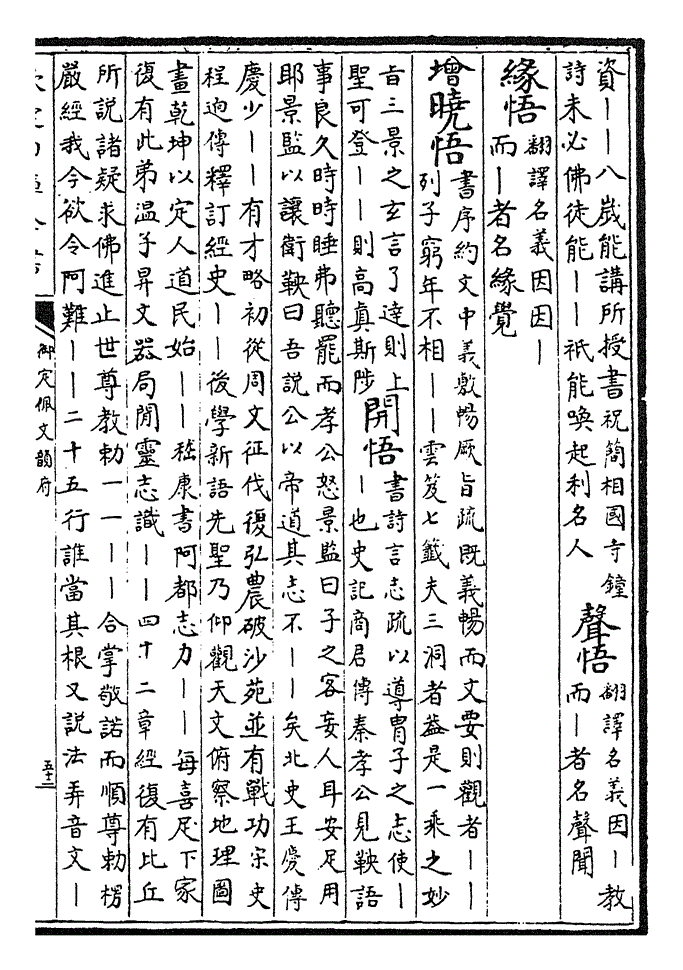 資——八歲能講所授書祝簡相國寺鐘
詩未必佛徒能——祇能喚起利名人
聲悟
翻譯名義因—教
而—者名聲聞
緣悟
翻譯名義因因—
而—者名緣覺
增曉悟
書序約文申義敷暢厥旨疏既義暢而文要則觀者——
列子窮年不相——雲笈七籤夫三洞者蓋是一乘之妙
旨三景之玄言了達則上
聖可登——則高真斯陟
開悟
書詩言志疏以導胄子之志使—
—也史記商君傳秦孝公見鞅語
事良久時時睡弗聽罷而孝公怒景監曰子之客妄人耳安足用
耶景監以讓衛鞅曰吾說公以帝道其志不——矣北史王慶傳
慶少——有才略初從周文征伐復弘農破沙苑並有戰功宋史
程迥傳釋訂經史——後學新語先聖乃仰觀天文俯察地理圖
畫乾坤以定人道民始——嵇康書阿都志力——每喜足下家
復有此弟溫子昇文器局閒靈志識——四十二章經復有比丘
所說諸疑求佛進止世尊教勅一一——合掌敬諾而順尊勅楞
嚴經我今欲令阿難——二十五行誰當其根又說法弄音文—
御定佩文韻府
五十二